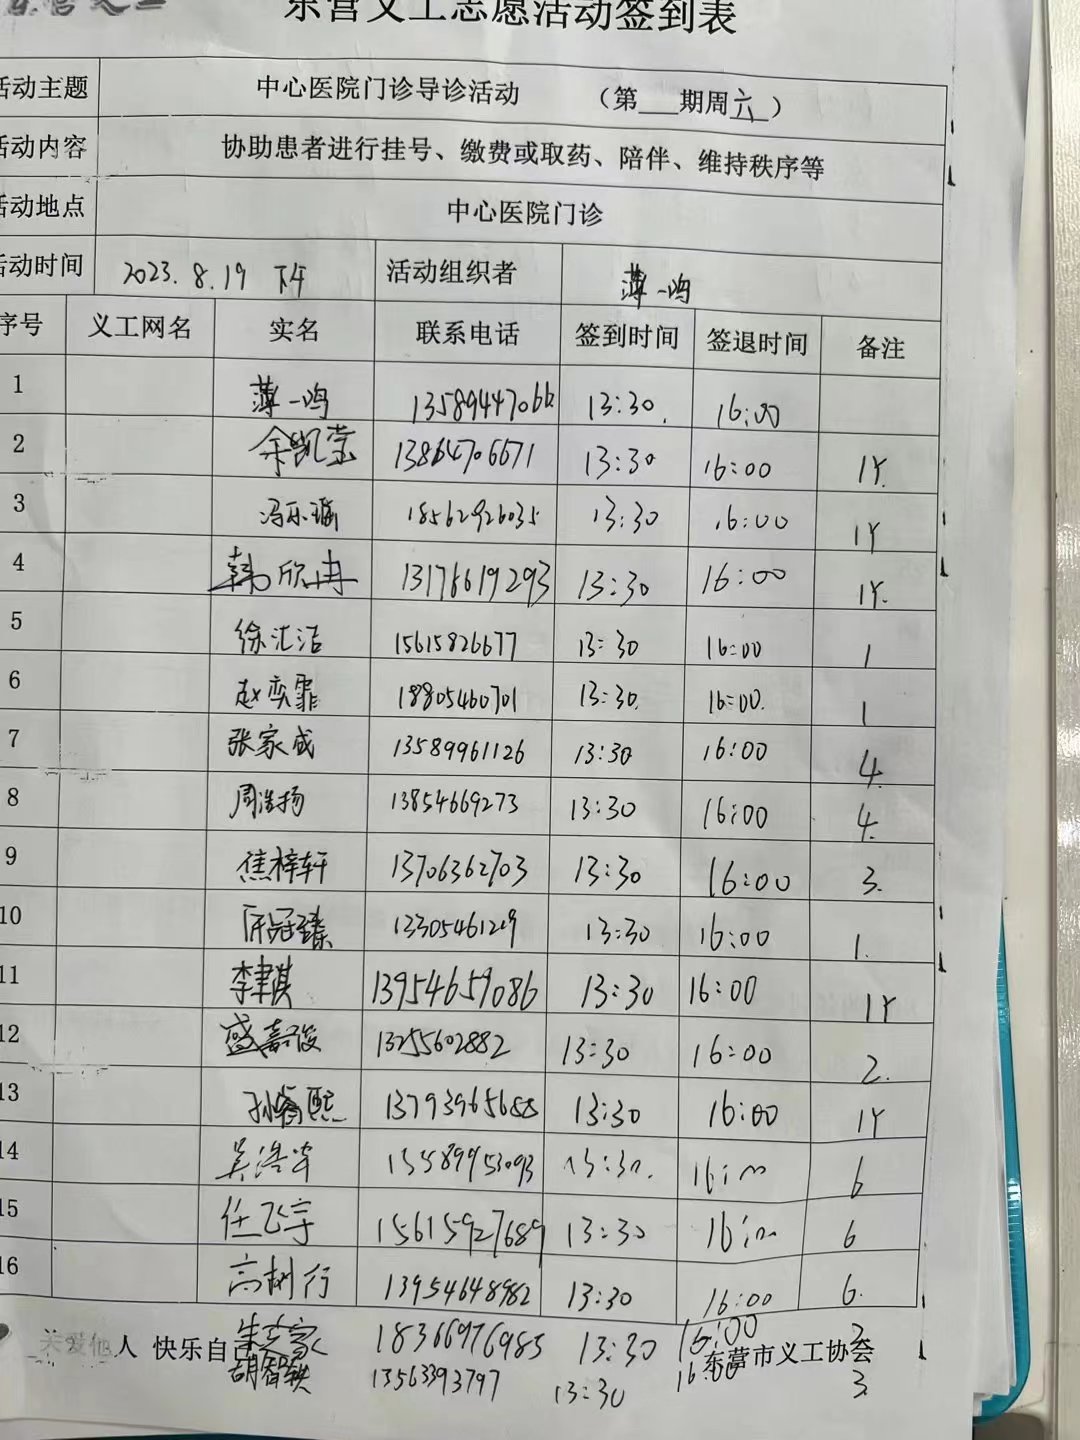 东营义工志愿活动签到表
活动主题 中心医院门诊导诊活动 （第___期周六）
活动内容 协助患者进行挂号、缴费或取药、陪伴、维持秩序等
活动地点 中心医院门诊
活动时间 2023.8.19 下午 活动组织者 薄一鸣
序号 义工网名 实名 联系电话 签到时间 签退时间 备注
1 薄一鸣 13589447066 13:30. 16:00
2 余凯莹 13864706671 13:30 16:00 1Y.
3 冯乐瑜 18562926035 13:30 16:00 1Y
4 韩欣冉 13176619293 13:30 16:00 1Y.
5 徐汇洁 15615826677 13:30 16:00 1
6 赵奕霏 18805460701 13:30. 16:00. 1
7 张家成 13589961126 13:30 16:00 4.
8 周浩扬 13854669273 13:30 16:00 4.
9 焦梓轩 13706362703 13:30 16:00 3.
10 冠臻 13305461219 13:30 16:00 1.
11 李聿淇 13954659086 13:30 16:00 1Y
12 盛嘉俊 13255602882 13:30 16:00 2.
13 孙睿熙 13793965688 13:30 16:00 1Y
14 吴浩宇 15589953093 13:30. 16:00 6
15 任飞宇 15615927689 13:30 16:00 6
16 高树行 13954648982 13:30 16:00 6.
朱 家 18366976985 13:30 16:00 3
关爱他人 快乐自己 东营市义工协会
胡智轶 13563393797 13:30 16:00 3.